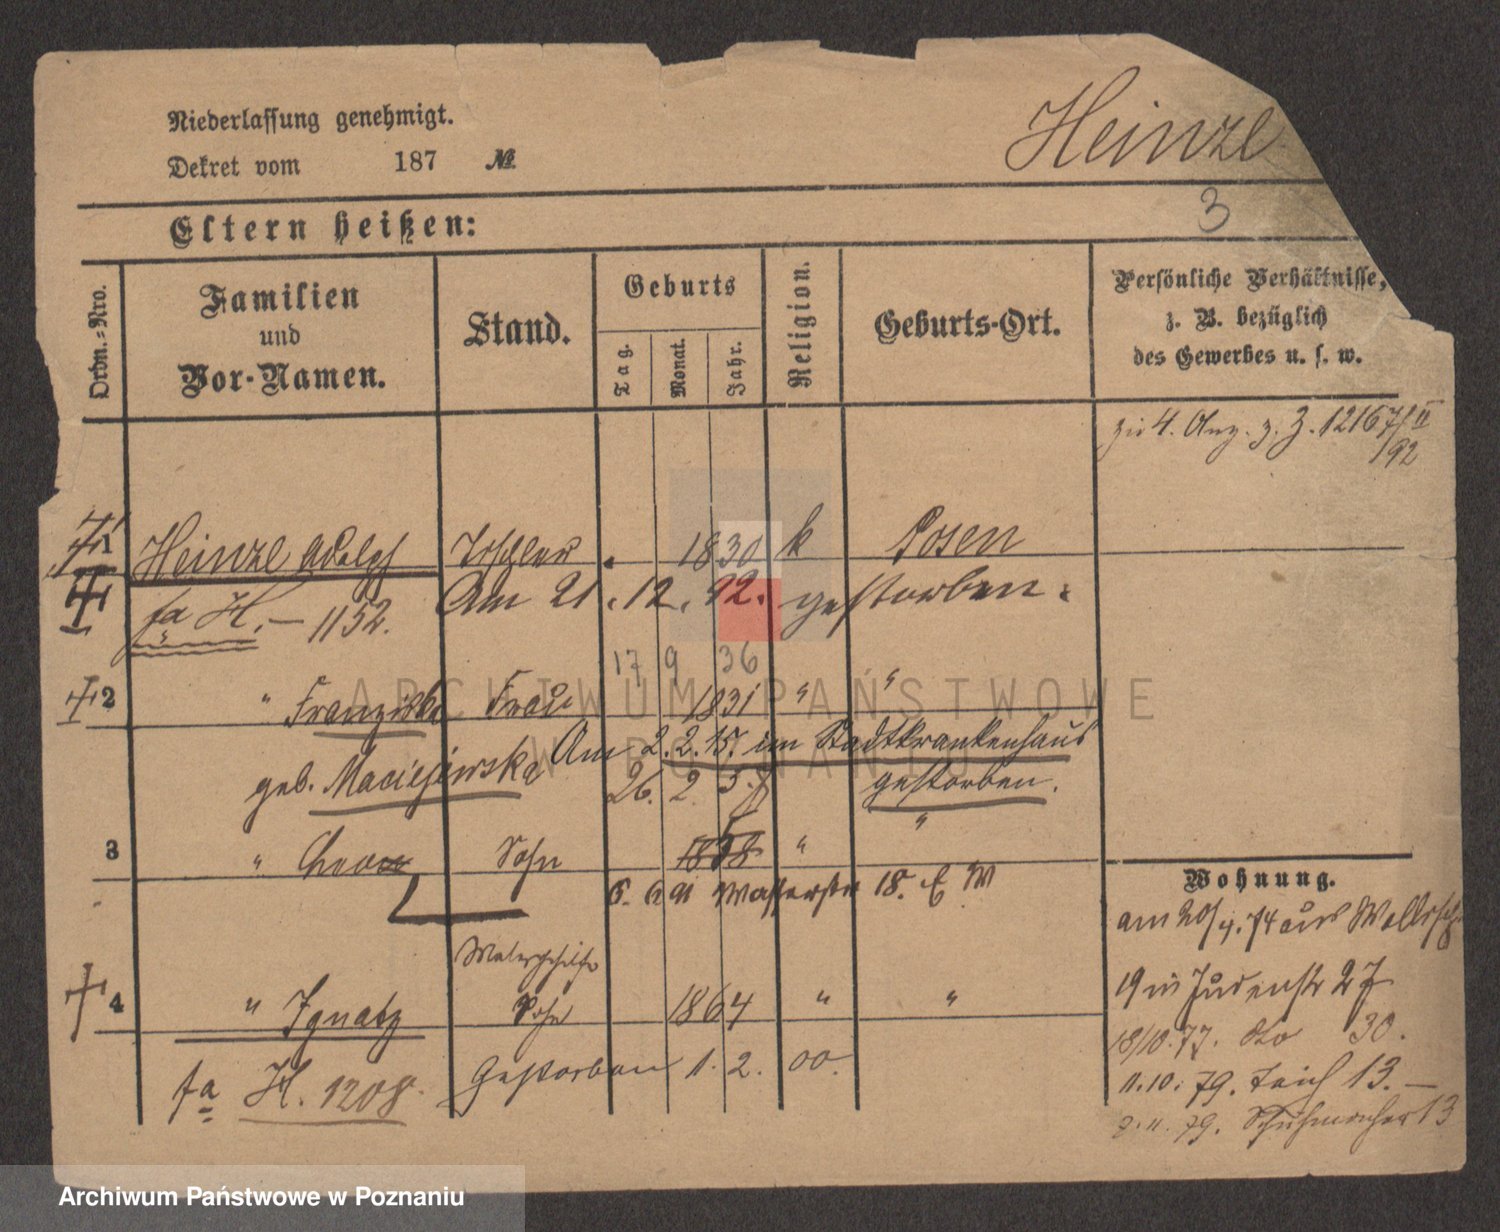 Niederlassung genehmigt.
Dekret vom 187 №
Heinze
3
Eltern heißen:
Ordn.-Nro.
Familien
und
Vor-Namen.
Stand.
Geburts
Tag.
Monat.
Jahr.
Religion.
Geburts-Ort.
Persönliche Verhältnisse,
z. B. bezüglich
des Gewerbes u. s. w.
zu 4. Anz. z. Z. 12167/II
/92
1 Heinze Adolf Tischler 1830 k Posen
fa H. – 1152. Am 21. 12. 92. gestorben.
17 9 36
2 " Franziska Frau 1831 " "
geb. Maciejewska Am 2. 2. 15. im Stadtkrankenhaus
26. 2. 37 gestorben.
3 " Leon Sohn 1858 " "
6. 6 91 Wasserstr 18.
Malergehilfe
4 " Ignatz Sohn 1864 " "
fa H. 1208. Gestorben 1. 2. 00.
Wohnung.
am 20/4. 74 aus
19 in Judenstr 27
18/10. 77. dto 30.
11. 10. 79. Teich 13. –
2. 11. 79. Schuhmacher 13
ARCHIWUM PAŃSTWOWE
W POZNANIU
Archiwum Państwowe w Poznaniu